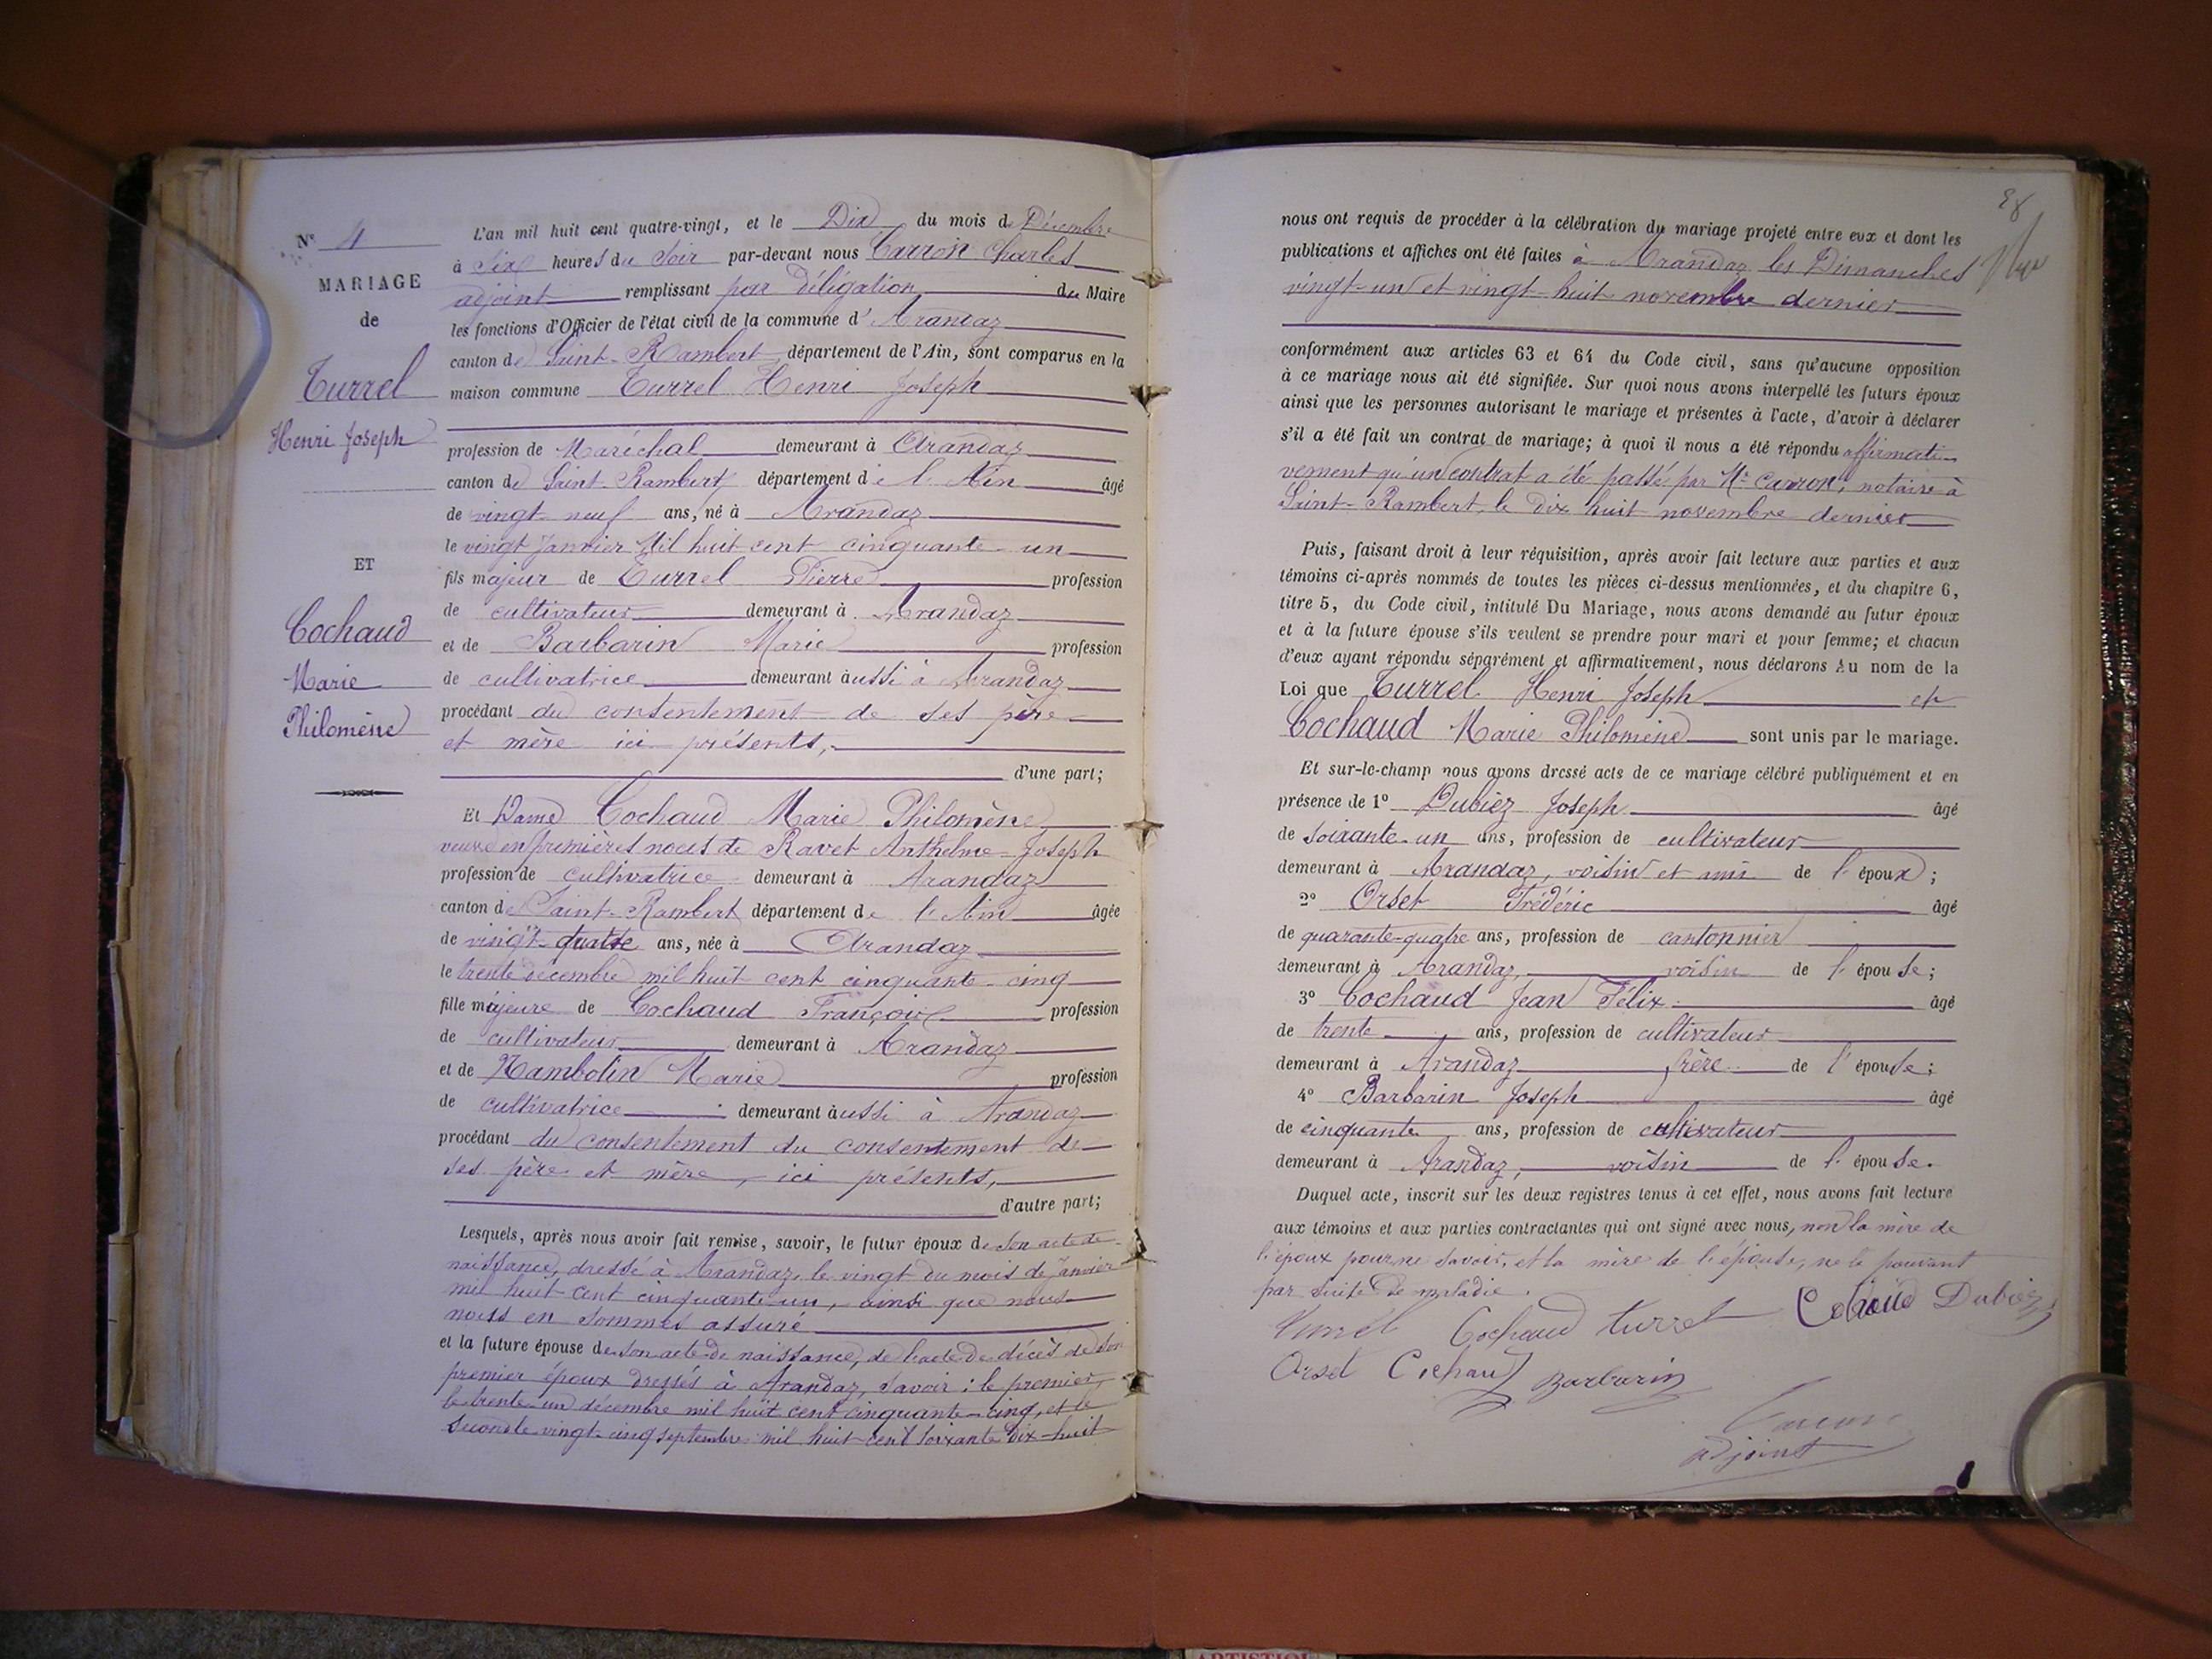 Nº 4
MARIAGE
de
Turrel
Henri Joseph
ET
Cochaud
Marie
Philomène
L'an mil huit cent quatre-vingt, et le Dix du mois de Décembre
à Six heures du Soir par-devant nous Carron Charles
adjoint remplissant par Déligation du Maire
les fonctions d'Officier de l'état civil de la commune d'Arandaz
canton de Saint-Rambert, département de l'Ain, sont comparus en la
maison commune Turrel Henri Joseph
profession de Maréchal demeurant à Arandaz
canton de Saint-Rambert département de l'Ain âgé
de vingt-neuf ans, né à Arandaz
le vingt Janvier Mil huit cent cinquante-un
fils majeur de Turrel Pierre profession
de cultivateur demeurant à Arandaz
et de Barbarin Marie profession
de cultivatrice demeurant aussi à Arandaz
procédant du consentement de ses père
et mère ici présents,
d'une part;
Et Dame Cochaud Marie Philomène
veuve en premières noces de Ravet Anthelme-Joseph
profession de cultivatrice demeurant à Arandaz
canton de Saint-Rambert département de l'Ain âgée
de vingt-quatre ans, née à Arandaz
le trente décembre mil huit cent cinquante-cinq
fille majeure de Cochaud François profession
de cultivateur demeurant à Arandaz
et de Nambotin Marie profession
de cultivatrice demeurant aussi à Arandaz
procédant du consentement du consentement de
ses père et mère, ici présents,
d'autre part;
Lesquels, après nous avoir fait remise, savoir, le futur époux de son acte de
naissance, dressé à Arandaz, le vingt du mois de janvier
mil huit cent cinquante-un, ainsi que nous
nous en sommes assuré
et la future épouse de son acte de naissance, de l'acte de décès de son
premier époux dressés à Arandaz, savoir: le premier,
le trente-un décembre mil huit cent cinquante-cinq, et le
second le vingt-cinq septembre mil huit cent soixante dix-huit
nous ont requis de procéder à la célébration du mariage projeté entre eux et dont les
publications et affiches ont été faites à Arandaz les Dimanches
vingt-un et vingt-huit novembre dernier
conformément aux articles 63 et 64 du Code civil, sans qu'aucune opposition
à ce mariage nous ait été signifiée. Sur quoi nous avons interpellé les futurs époux
ainsi que les personnes autorisant le mariage et présentes à l'acte, d'avoir à déclarer
s'il a été fait un contrat de mariage; à quoi il nous a été répondu affirmati-
vement qu'un contrat a été passé par Me Carron, notaire à
Saint-Rambert, le dix huit novembre dernier
Puis, faisant droit à leur réquisition, après avoir fait lecture aux parties et aux
témoins ci-après nommés de toutes les pièces ci-dessus mentionnées, et du chapitre 6,
titre 5, du Code civil, intitulé Du Mariage, nous avons demandé au futur époux
et à la future épouse s'ils veulent se prendre pour mari et pour femme; et chacun
d'eux ayant répondu séparément et affirmativement, nous déclarons Au nom de la
Loi que Turrel Henri Joseph et
Cochaud Marie Philomène sont unis par le mariage.
Et sur-le-champ nous avons dressé acte de ce mariage célébré publiquement et en
présence de 1º Dubiez Joseph âgé
de soixante-un ans, profession de cultivateur
demeurant à Arandaz, voisin et ami de l'époux;
2º Orset Frédéric âgé
de quarante-quatre ans, profession de cantonnier
demeurant à Arandaz, voisin de l'épouse;
3º Cochaud Jean Félix âgé
de trente ans, profession de cultivateur
demeurant à Arandaz frère de l'épouse;
4º Barbarin Joseph âgé
de cinquante ans, profession de cultivateur
demeurant à Arandaz, voisin de l'épouse.
Duquel acte, inscrit sur les deux registres tenus à cet effet, nous avons fait lecture
aux témoins et aux parties contractantes qui ont signé avec nous, non la mère de
l'époux pour ne savoir, et la mère de l'épouse, ne le pouvant
par suite de maladie.
Turrel Cochaud Turrel Cochaud Dubiez
Orset Cochaud Barbarin
Carron
adjoint